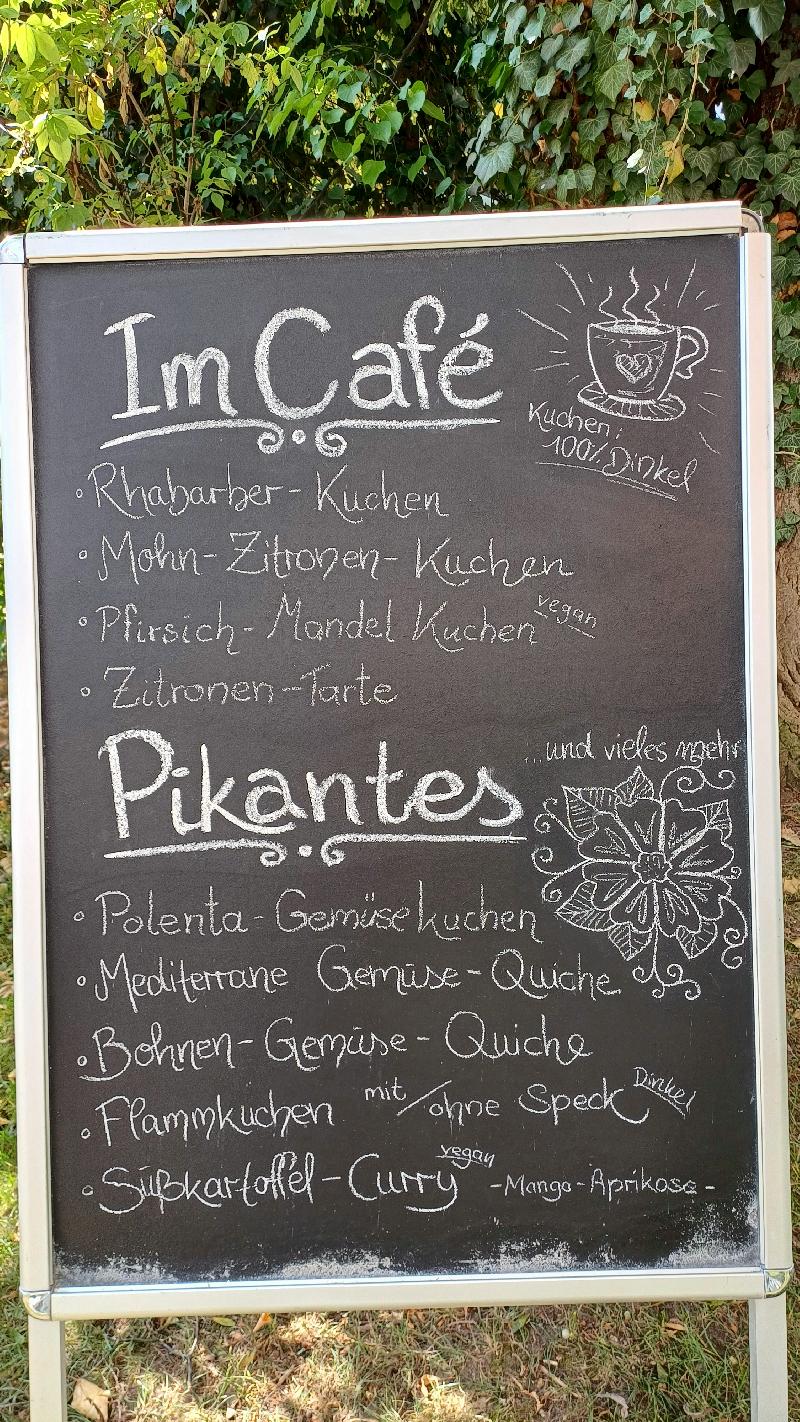 Im Café
Kuchen:
100% Dinkel
° Rhabarber-Kuchen
° Mohn-Zitronen-Kuchen
° Pfirsich-Mandel Kuchen vegan
° Zitronen-Tarte
...und vieles mehr
Pikantes
° Polenta-Gemüsekuchen
° Mediterrane Gemüse-Quiche
° Bohnen-Gemüse-Quiche
° Flammkuchen mit/ohne Speck Dinkel
° Süßkartoffel-Curry vegan -Mango-Aprikose-